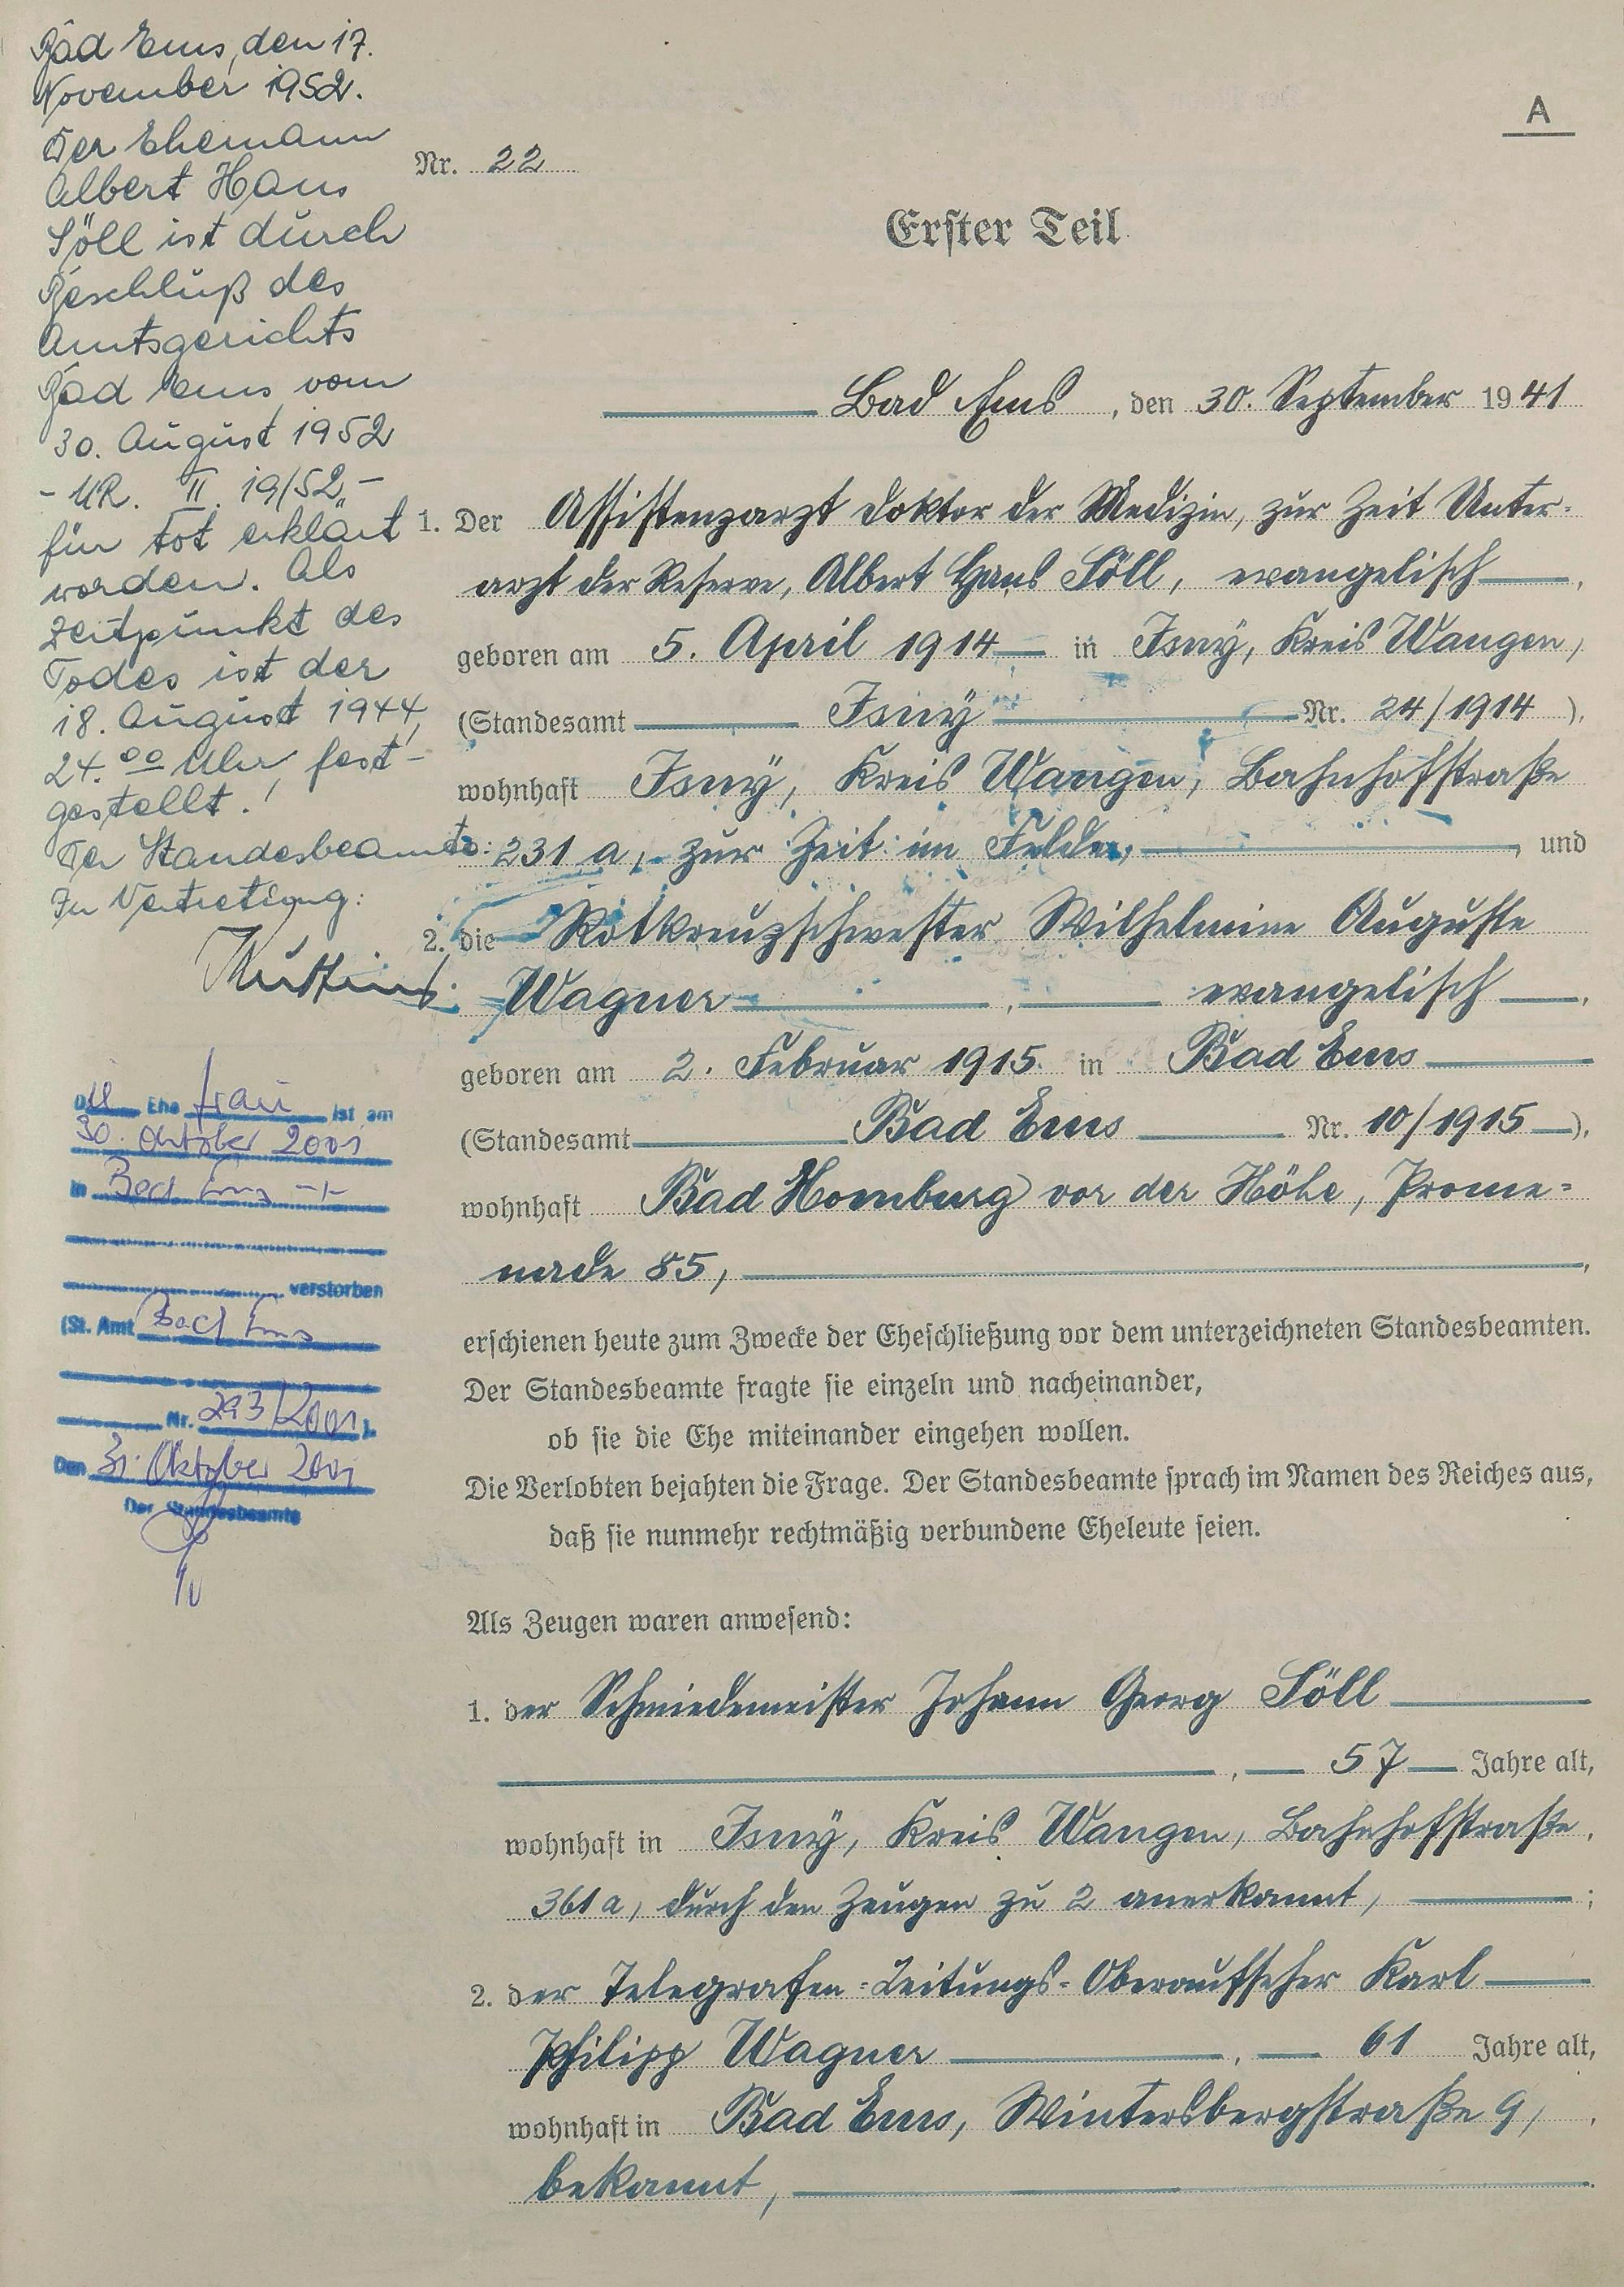 Bad Ems, den 17.
November 1952.
Der Ehemann
Albert Hans
Söll ist durch
Beschluß des
Amtsgerichts
Bad Ems vom
30. August 1952
- UR. II. 19/52 -
für tot erklärt
worden. Als
Zeitpunkt des
Todes ist der
18. August 1944,
24.00 Uhr, fest-
gestellt.
Der Standesbeamte:
In Vertretung:
Die Ehe frau ist am
30. Oktober 2001
in Bad Ems -/-
verstorben
(St. Amt Bad Ems
Nr. 293/2001).
Den 31. Oktober 2001
Der Standesbeamte
A
Nr. 22
Erster Teil
Bad Ems, den 30. September 1941
1. Der Assistenzarzt Doktor der Medizin, zur Zeit Unter-
arzt der Reserve, Albert Hans Söll, evangelisch,
geboren am 5. April 1914 in Isny, Kreis Wangen,
(Standesamt Isny Nr. 24/1914),
wohnhaft Isny, Kreis Wangen, Bahnhofstraße
231 a, zur Zeit im Felde, und
2. die Rotkreuzschwester Wilhelmine Auguste
Wagner, evangelisch,
geboren am 2. Februar 1915 in Bad Ems
(Standesamt Bad Ems Nr. 10/1915),
wohnhaft Bad Homburg vor der Höhe, Prome=
nade 85,
erschienen heute zum Zwecke der Eheschließung vor dem unterzeichneten Standesbeamten.
Der Standesbeamte fragte sie einzeln und nacheinander,
ob sie die Ehe miteinander eingehen wollen.
Die Verlobten bejahten die Frage. Der Standesbeamte sprach im Namen des Reiches aus,
daß sie nunmehr rechtmäßig verbundene Eheleute seien.
Als Zeugen waren anwesend:
1. der Schmiedemeister Johann Georg Söll
, 57 Jahre alt,
wohnhaft in Isny, Kreis Wangen, Bahnhofstraße
361 a, durch den Zeugen zu 2 anerkannt, ;
2. der Telegrafen=Leitungs=Oberaufseher Karl
Philipp Wagner, 61 Jahre alt,
wohnhaft in Bad Ems, Wintersbergstraße 9,
bekannt, .